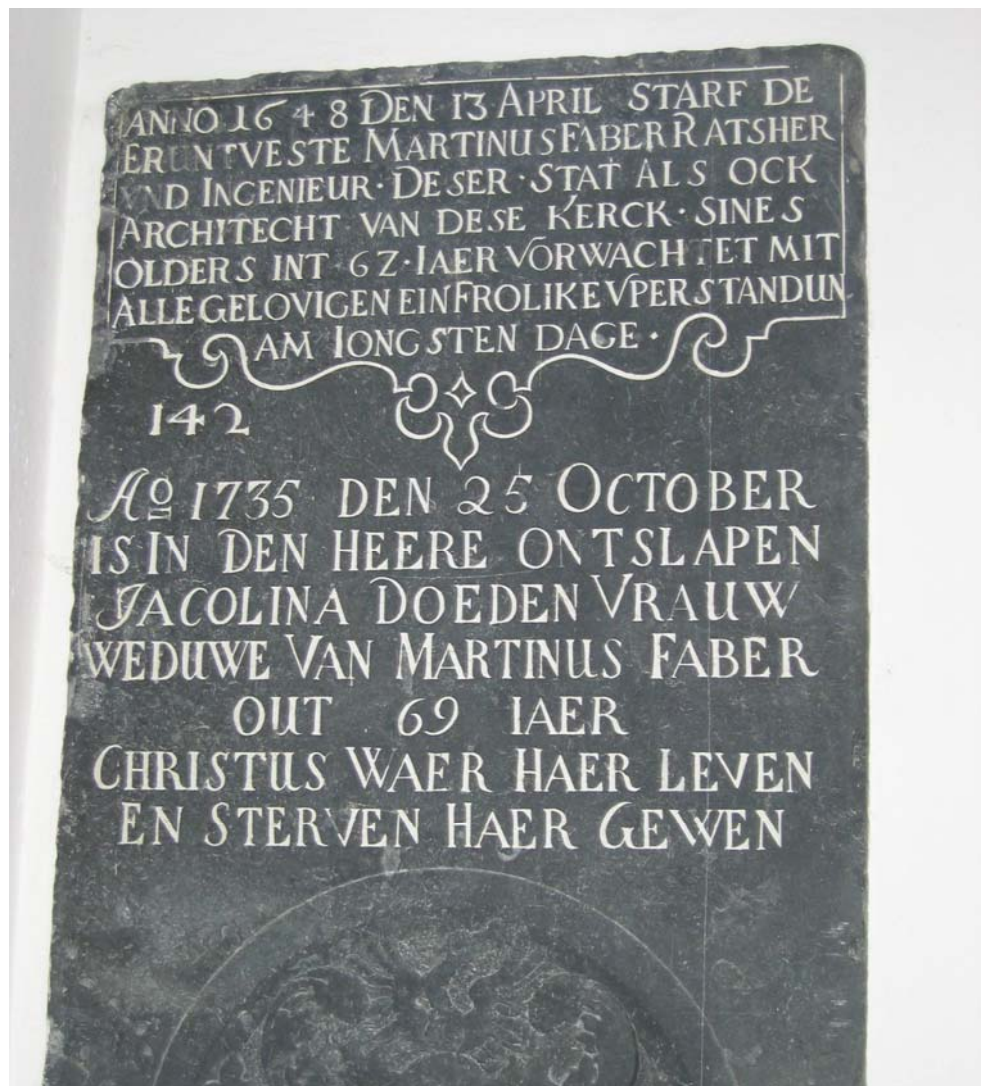 ANNO 1648 DEN 13 APRIL STARF DE
ERUNTVESTE MARTINUS FABER RATSHER
VND INGENIEUR · DESER · STAT ALS OCK
ARCHITECHT VAN DESE KERCK · SINES
OLDERS INT · 62 · IAER VORWACHTET MIT
ALLE GELOVIGEN EIN FROLIKE VPERSTANDUN
AM IONGSTEN DAGE ·
142
Aº 1735 DEN 25 OCTOBER
IS IN DEN HEERE ONTSLAPEN
JACOLINA DOEDEN VRAUW
WEDUWE VAN MARTINUS FABER
OUT 69 IAER
CHRISTUS WAER HAER LEVEN
EN STERVEN HAER GEWEN